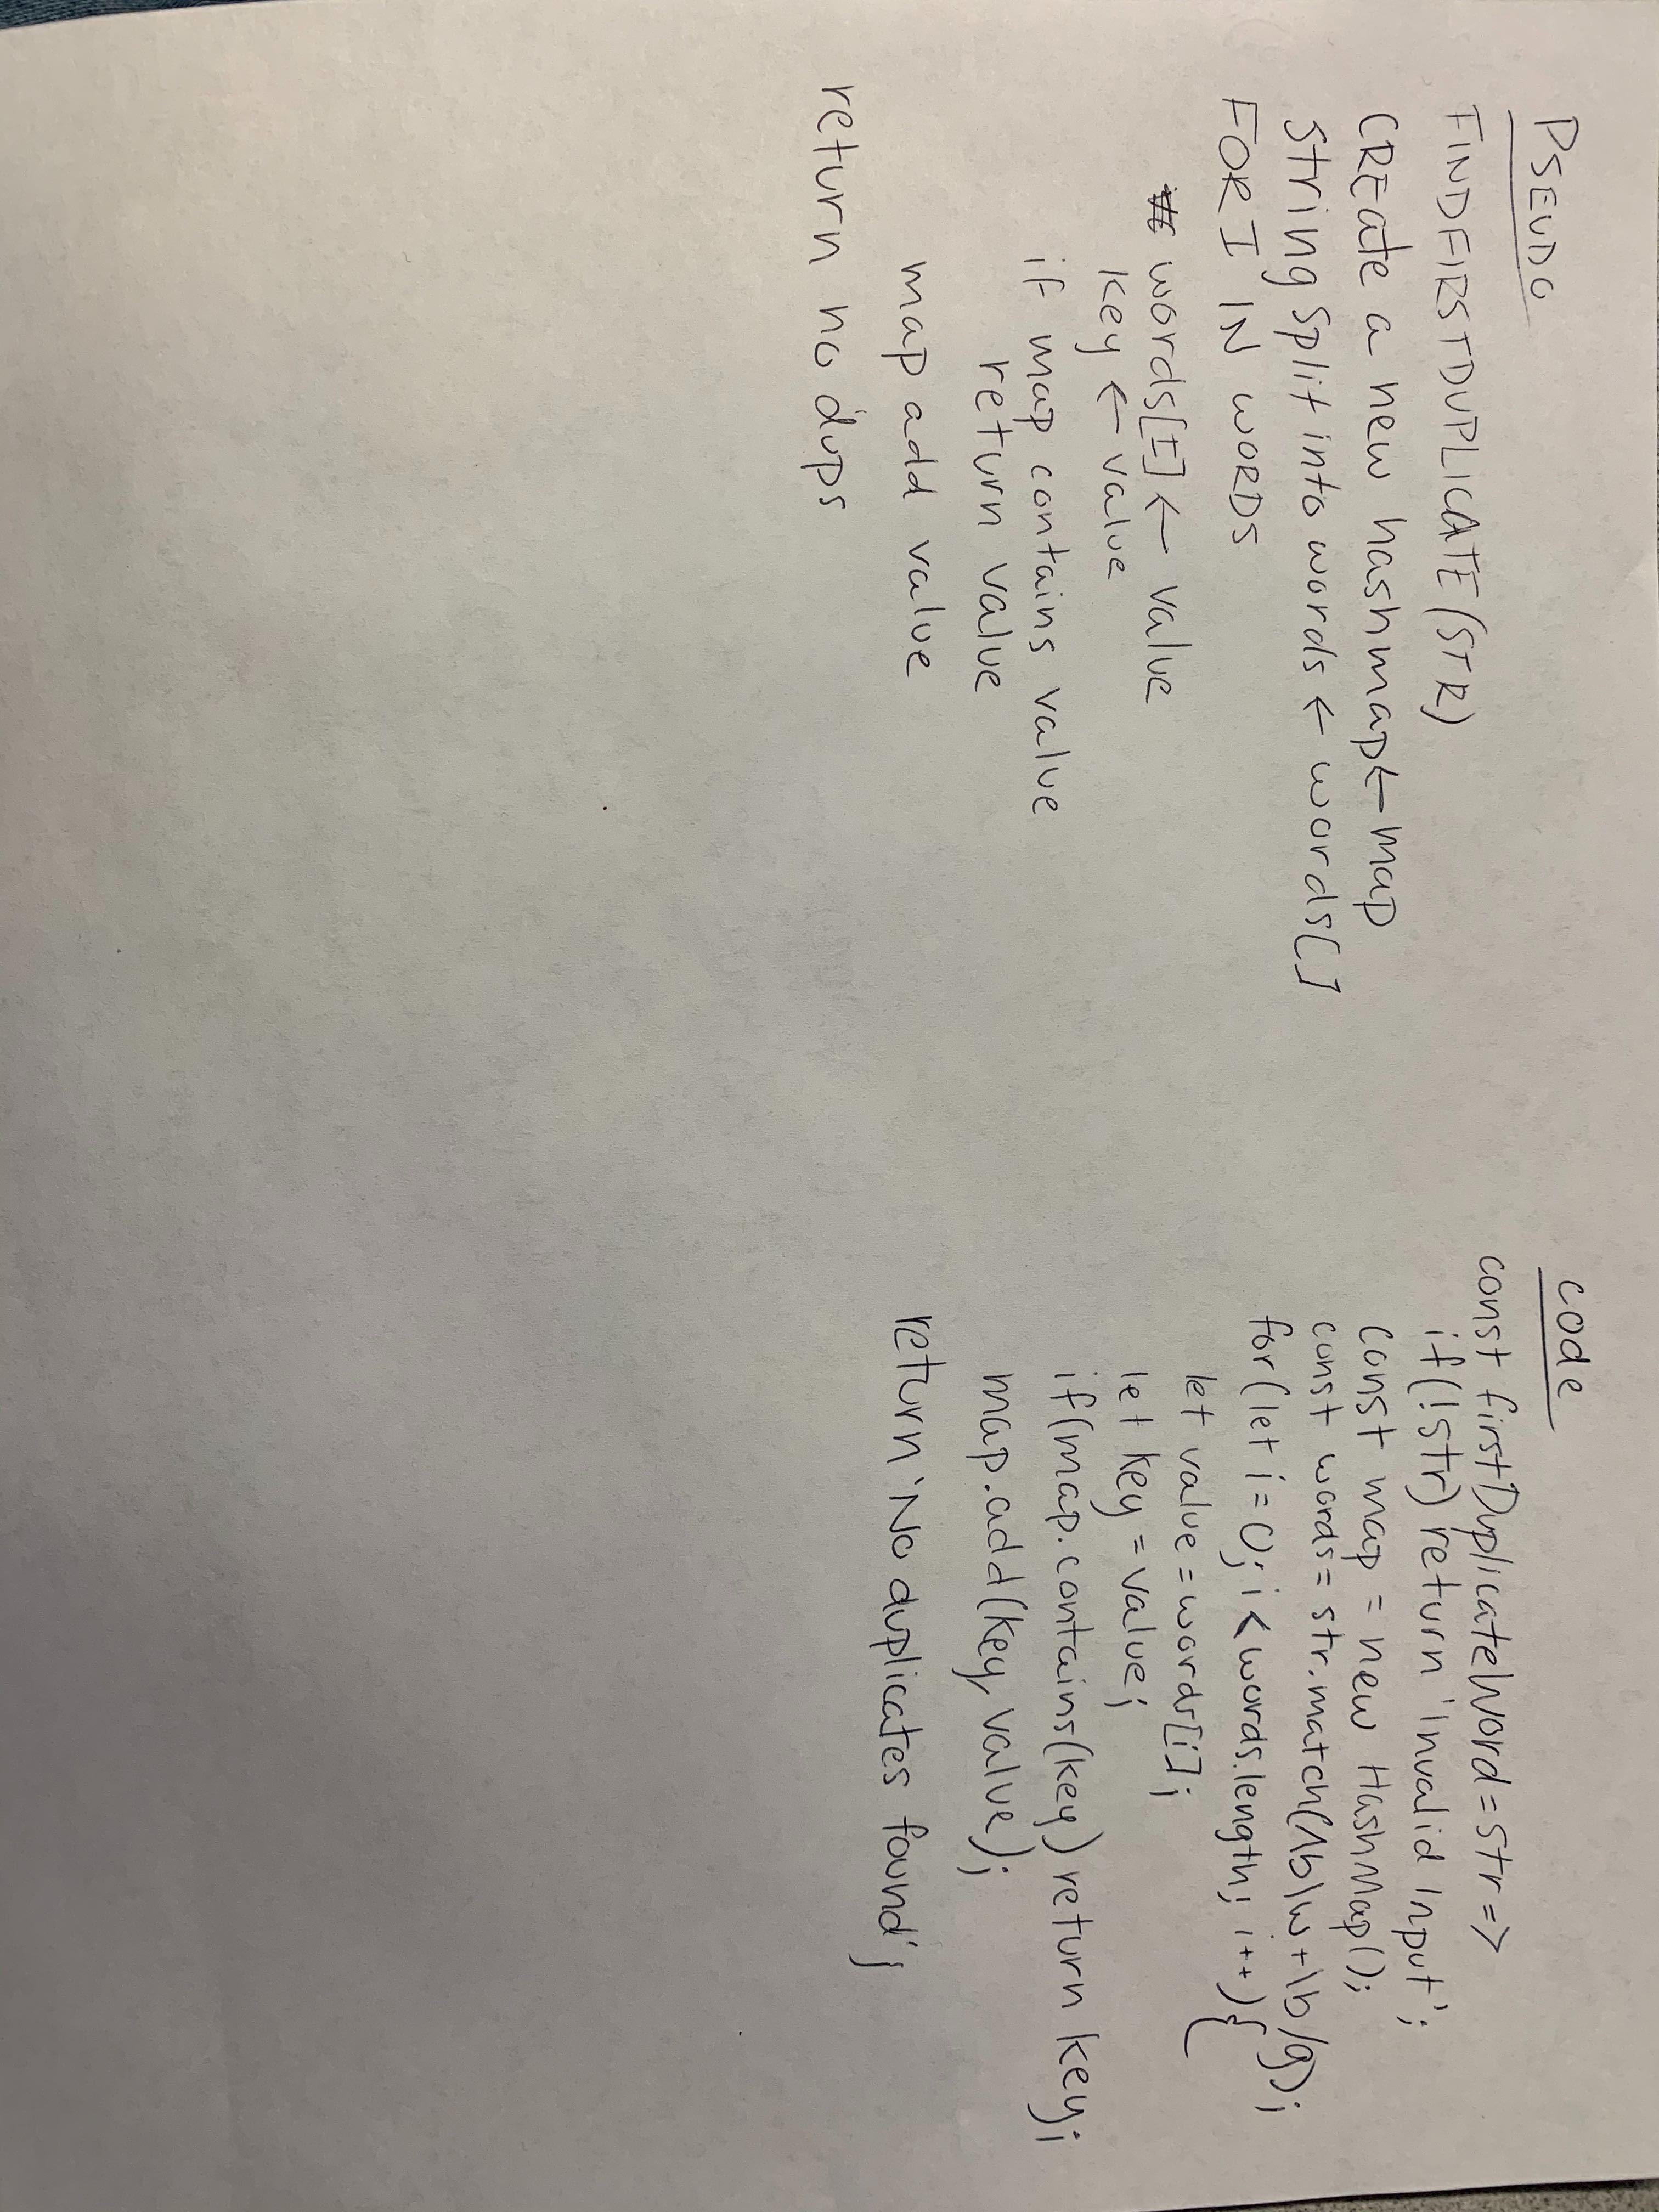 PSEUDO
FINDFIRSTDUPLICATE(STR)
CREate a new hashmap ← map
String Split into words ← words[]
FOR I IN WORDS
words[I] ← value
key ← value
if map contains value
return value
map add value
return no dups
code
const firstDuplicateWord = str =>
if(!str) return 'Invalid Input';
const map = new HashMap();
const words = str.match(/\b\w+\b/g);
for(let i=0; i<words.length; i++){
let value = words[i];
let key = value;
if(map.contains(key) return key;
map.add(key, value);
return 'No duplicates found';